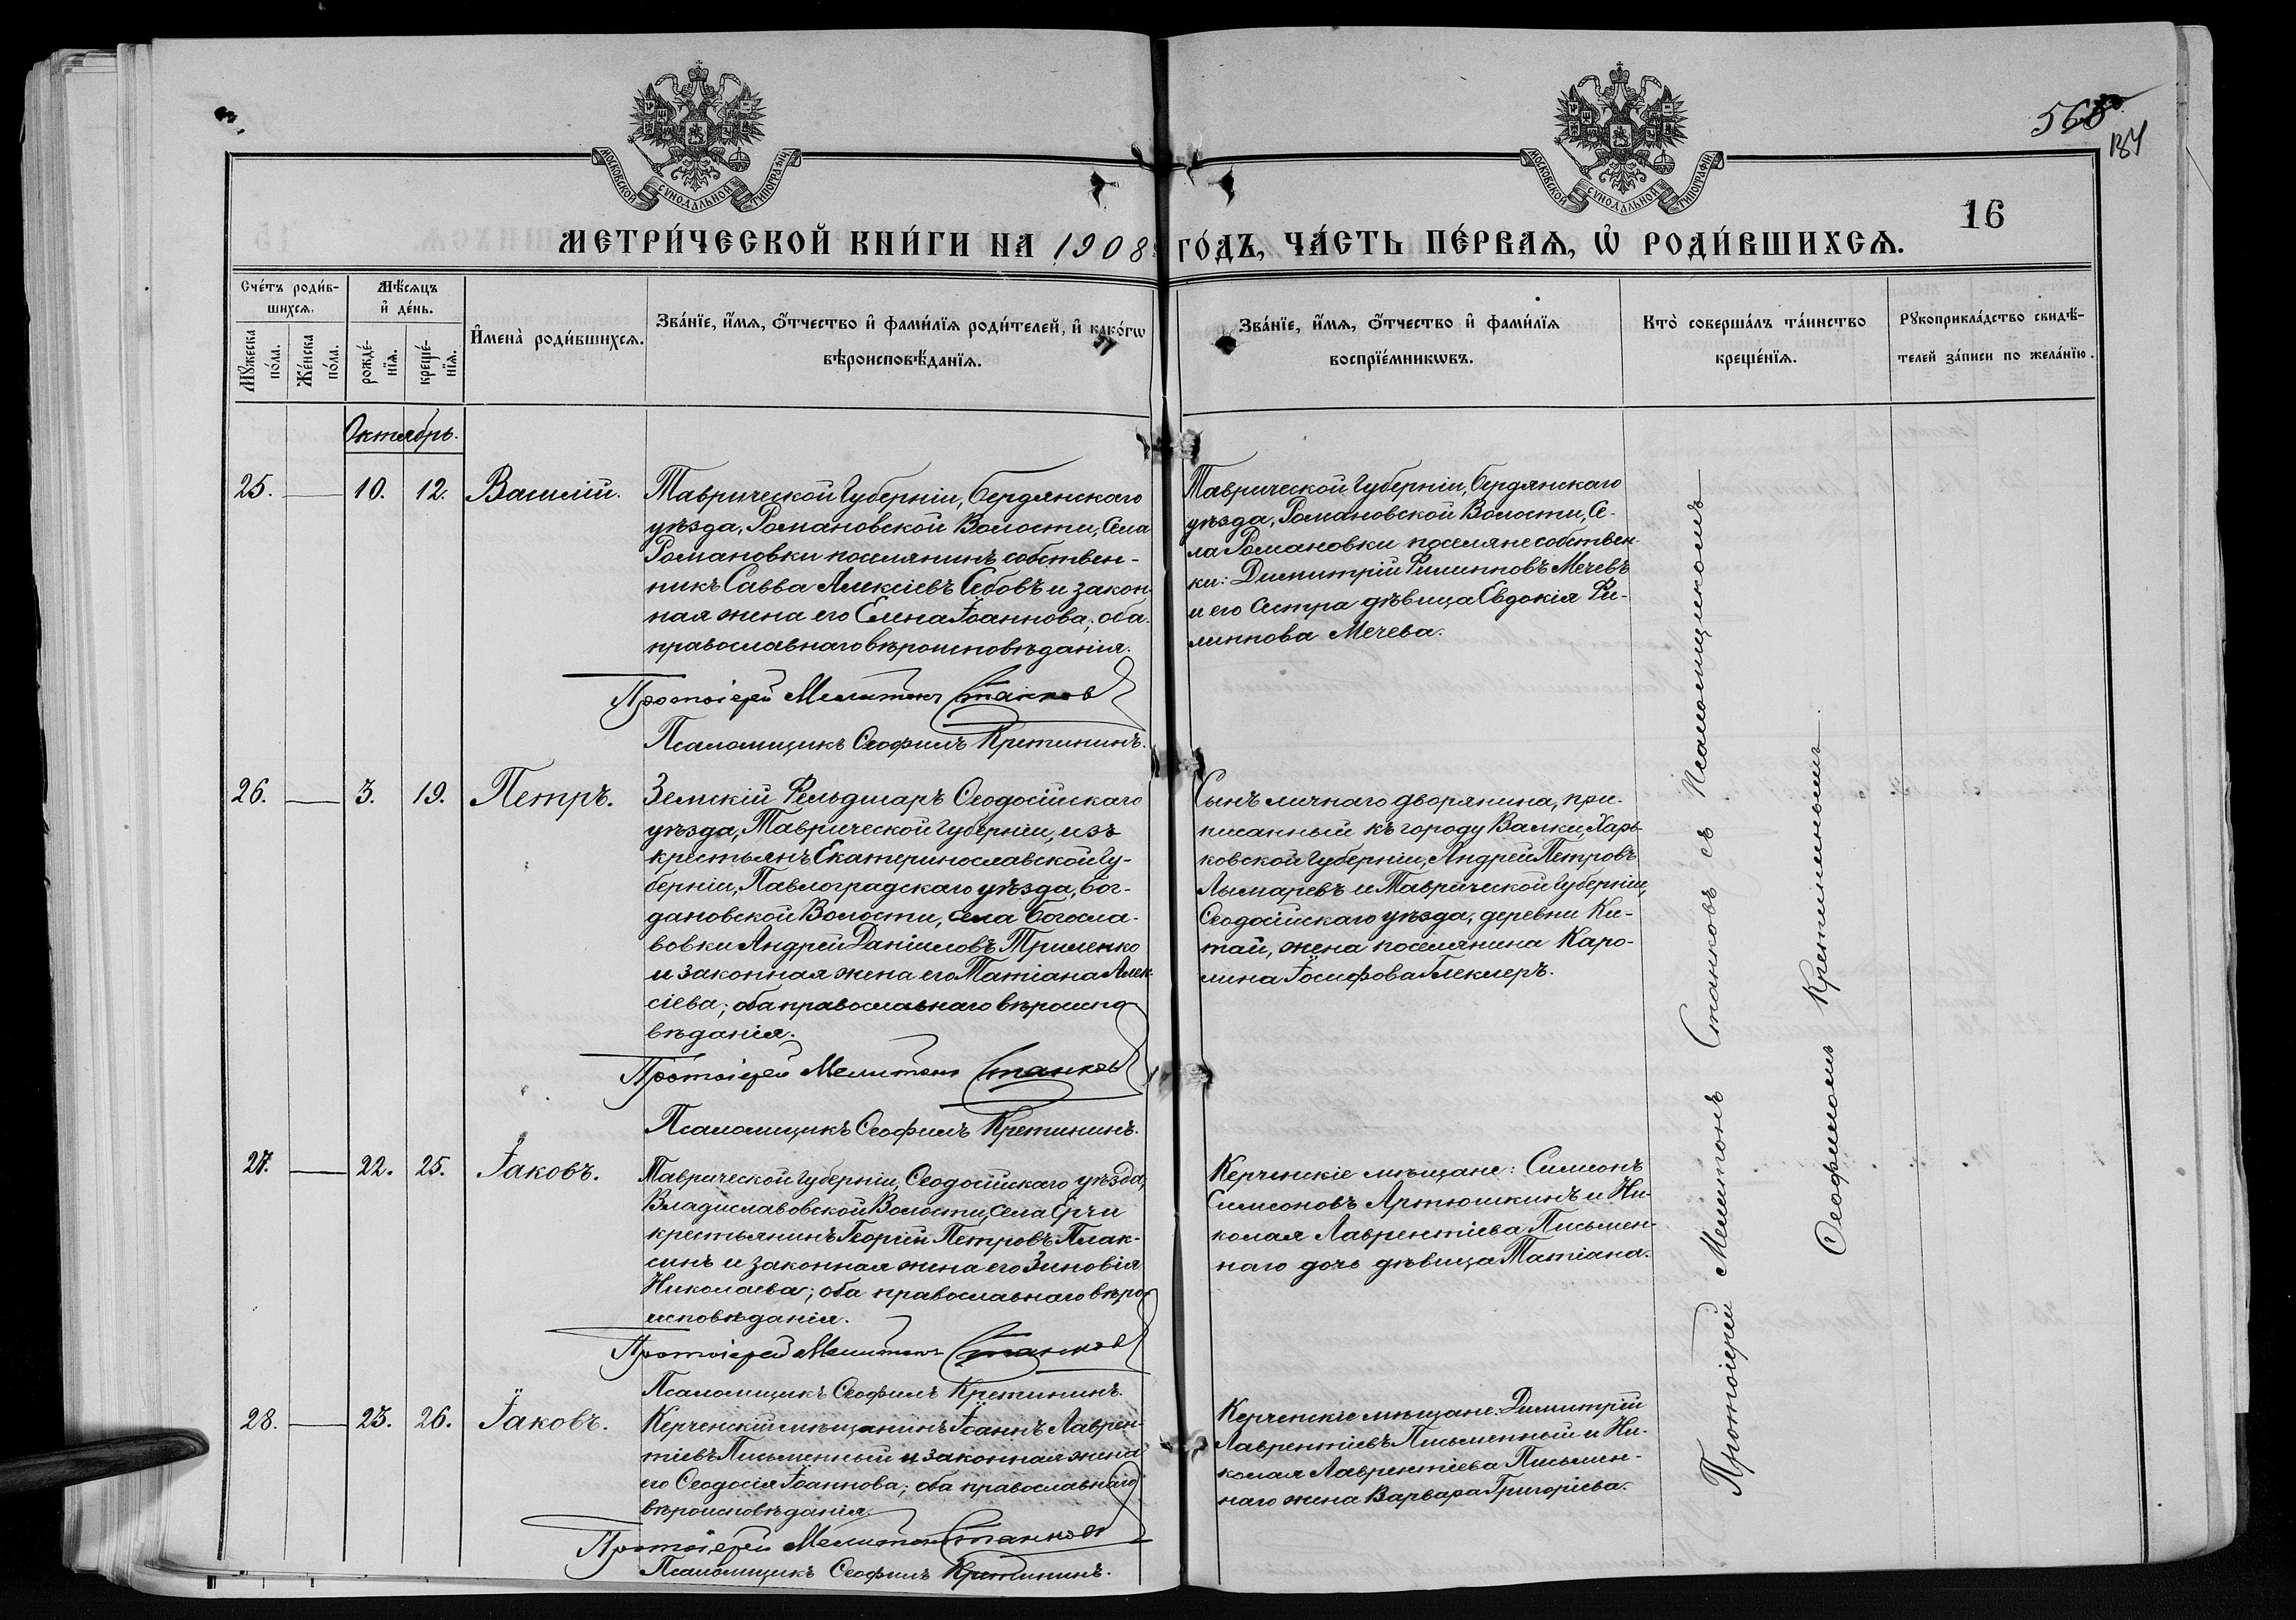 568
184
МОСКОВСКОЙ СѴНОДАЛЬНОЙ ТИПОГРАФІИ
МОСКОВСКОЙ СѴНОДАЛЬНОЙ ТИПОГРАФІИ
16
МЕТРИ́ЧЕСКОЙ КНИ́ГИ НА 1908 ГО́ДЪ, ЧА́СТЬ ПЕ́РВАѦ, Ѡ҆ РОДИ́ВШИХСѦ.
Сче́тъ роди́в-
шихсѧ.
Мꙋ́жеска по́ла.
Же́нска по́ла.
Мѣ́сѧцъ
и҆ де́нь.
рожде́-
нїѧ.
креще́-
нїѧ.
И҆мена̀ роди́вшихсѧ.
Зва́нїе, и҆́мѧ, ѻ҆́тчество и҆ фами́лїѧ роди́телей, и҆ како́гѡ
вѣроисповѣ́данїѧ.
Зва́нїе, и҆́мѧ, ѻ҆́тчество и҆ фами́лїѧ
воспрїе́мникѡвъ.
Кто̀ соверша́лъ та́инство
креще́нїѧ.
Рꙋкоприкла́дство свидѣ́-
телей за́писи по жела́нїю.
Октябрь.
25. — 10. 12. Василій.
Таврической Губерніи, Бердянскаго
уѣзда, Романовской Волости, Села
Романовки поселянинъ собствен-
никъ Савва Алексіевъ Себовъ и закон-
ная жена его Елена Іоаннова; оба
православнаго вѣроисповѣданія.
Протоіерей Мелитонъ Станковъ
Псаломщикъ Ѳеофилъ Кретининъ.
Таврической Губерніи, Бердянскаго
уѣзда, Романовской Волости, Се-
ла Романовки поселяне собствен-
ки: Димитрій Филипповъ Мечевъ
и его сестра дѣвица Евдокія Фи-
липпова Мечева.
26. — 3. 19. Петръ.
Земскій Фельдшаръ Ѳеодосійскаго
уѣзда, Таврической Губерніи, изъ
крестьянъ Екатеринославской Гу-
берніи, Павлоградскаго уѣзда, Бог-
дановской Волости, села Богосла-
вовки Андрей Даніиловъ Трименко
и законная жена его Татіана Алек-
сіева; оба православнаго вѣроиспо
вѣданія.
Протоіерей Мелитонъ Станковъ
Псаломщикъ Ѳеофилъ Кретининъ.
Сынъ личнаго дворянина, при-
писанный къ городу Валки, Харь-
ковской Губерніи, Андрей Петровъ
Лымаревъ и Таврической Губерніи,
Ѳеодосійскаго уѣзда, деревни Ки-
тай, жена поселянина Каро-
лина Іосифова Глеклеръ.
27. — 22. 25. Іаковъ.
Таврической Губерніи, Ѳеодосійскаго уѣзда,
Владиславовской Волости, села Ерчи
крестьянинъ Георгій Петровъ Плак-
синъ и законная жена его Зиновія
Николаева; оба православнаго вѣро-
исповѣданія.
Протоіерей Мелитонъ Станковъ
Псаломщикъ Ѳеофилъ Кретининъ.
Керченскіе мѣщане: Симеонъ
Симеоновъ Артюшкинъ и Ни-
колая Лаврентіева Письмен-
наго дочь дѣвица Татіана.
28. — 23. 26. Іаковъ.
Керченскій мѣщанинъ Іоаннъ Лаврен-
тіевъ Письменный и законная жена
его Ѳеодосія Іоаннова; оба православнаго
вѣроисповѣданія.
Протоіерей Мелитонъ Станковъ
Псаломщикъ Ѳеофилъ Кретининъ.
Керченскіе мѣщане: Димитрій
Лаврентіевъ Письменный и Ни-
колая Лаврентіева Письмен-
наго жена Варвара Григоріева.
Протоіерей Мелитонъ Станковъ съ Псаломщикомъ
Ѳеофиломъ Кретининымъ.